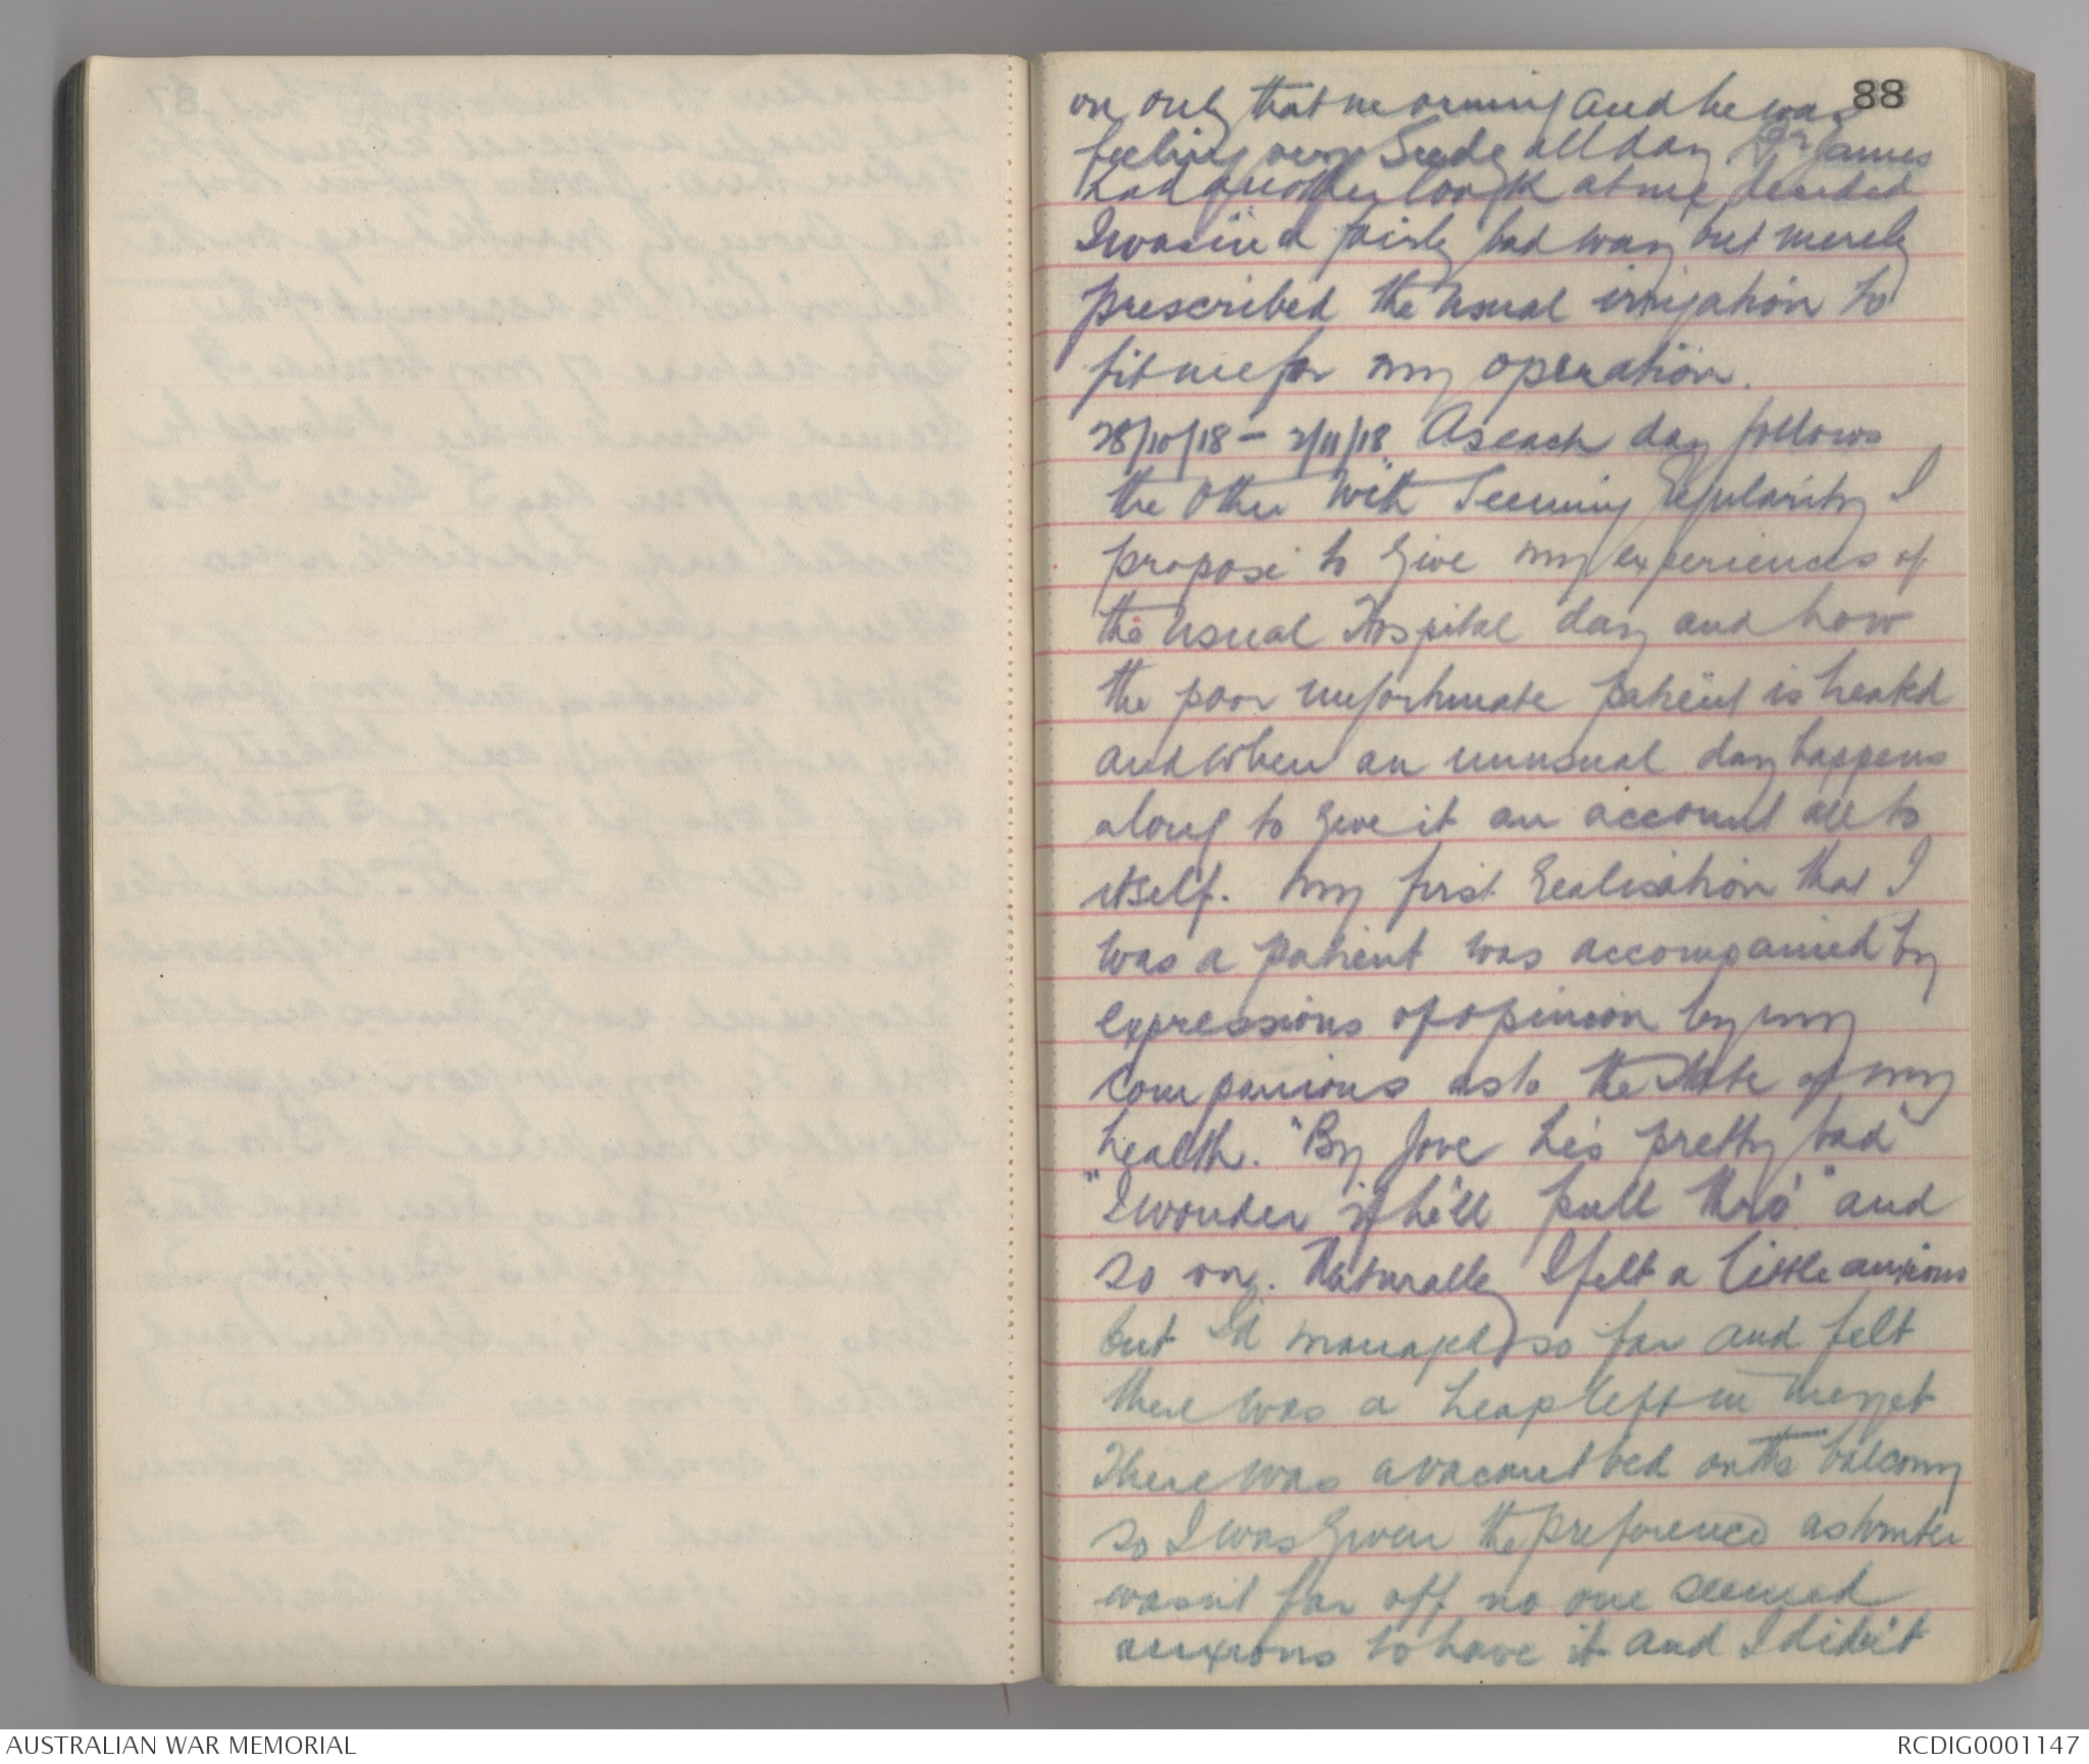 88
on only that morning and he was
feeling very seedy all day Dr James
had another look at me decided
I was in a fairly bad way but merely
prescribed the usual irrigation to
fit me for my operation.
28/10/18 - 2/11/18. As each day follows
the other with seeming regularity I
propose to give my experiences of
the usual Hospital day and how
the poor unfortunate patient is treated
and when an unusual day happens
along to give it an account all to
itself. My first realisation that I
was a patient was accompanied by
expressions of opinion by my
companions as to the state of my
health. "By Jove he's pretty bad"
"I wonder if he'll pull thro'" and
so on. Naturally I felt a little anxious
but I'd managed so far and felt
there was a heap left in me yet
There was a vacant bed on the balcony
so I was given the preference as winter
wasn't far off no one seemed
anxious to have it and I didn't
AUSTRALIAN WAR MEMORIAL
RCDIG0001147